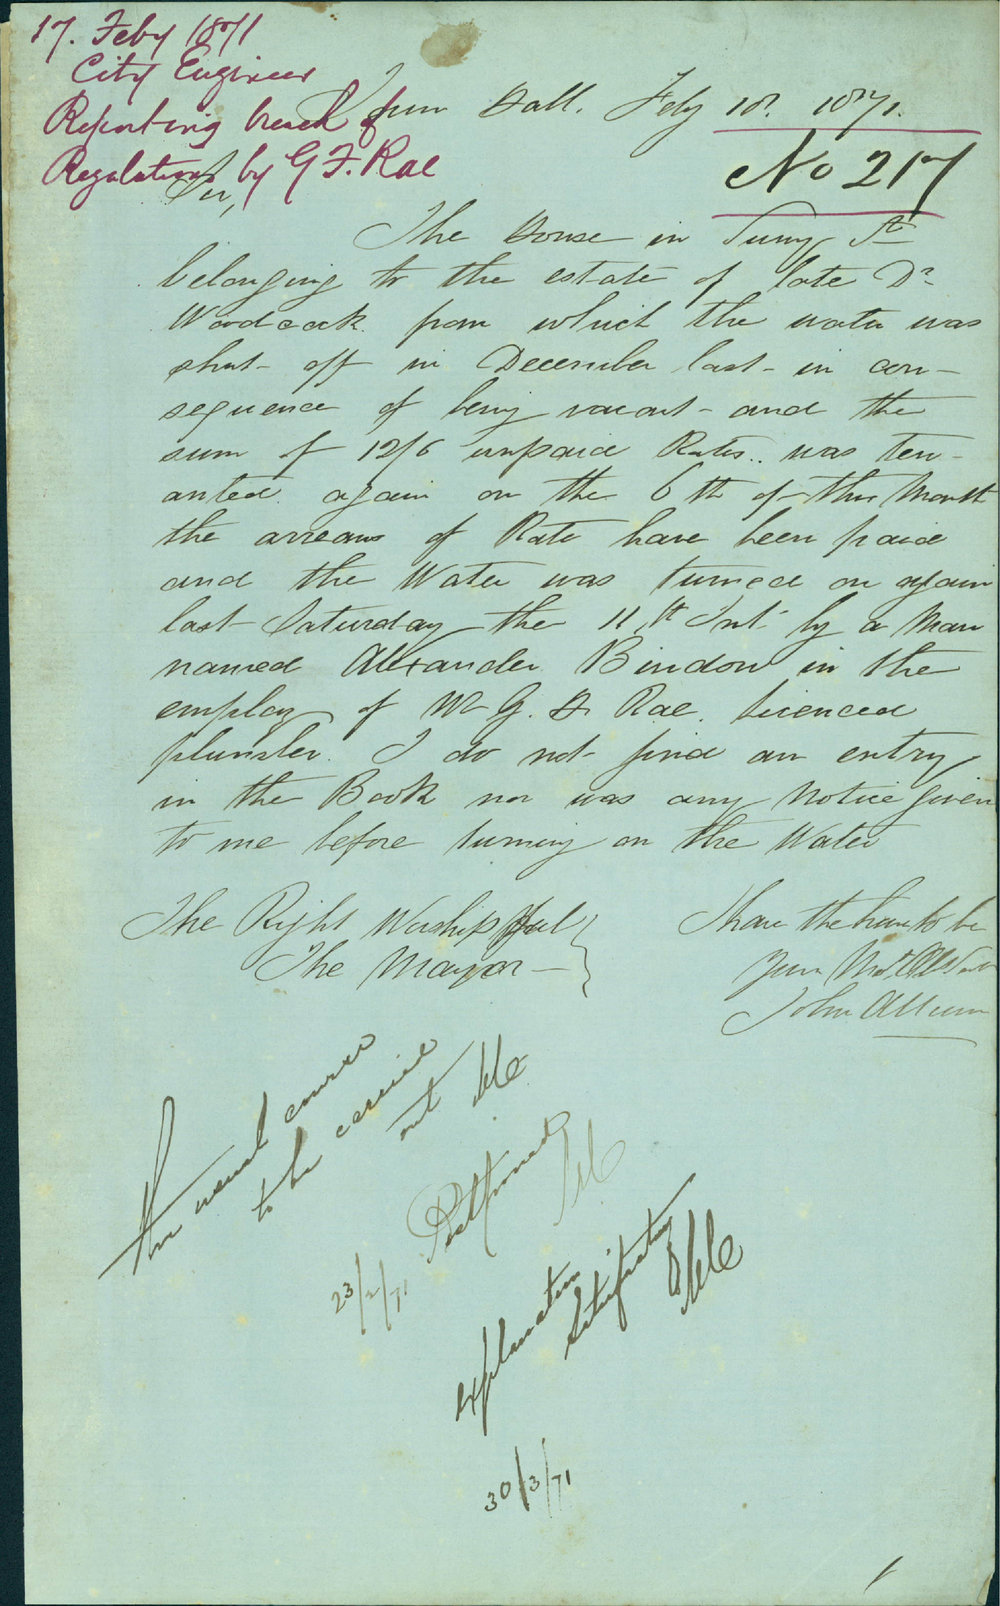 17. Feby 1871
City Engineer
Reporting breach of
Regulations by G F. Rae
Town Hall. Feby 18. 1871.
No 217
Sir,
The House in St
belonging to the estate of late Dr
Woodcock from which the water was
shut off in December last in con-
sequence of being vacant and the
sum of 12/6 unpaid Rates.. was ten-
anted again on the 6th of this Month
the arrears of Rate have been paid
and the Water was turned on again
last Saturday the 11th Inst by a Man
named Alexander Bindon in the
employ of Mr G. Rae. Licenced
plumber. I do not find an entry
in the Book nor was any Notice given
to me before turning on the Water
The Right Worshipful
The Mayor
I have the honr to be
Your Mot Obt Servt
John
The usual course
to be carried
out
Postponed
23/2/71
explanation
satisfactory
30/3/71